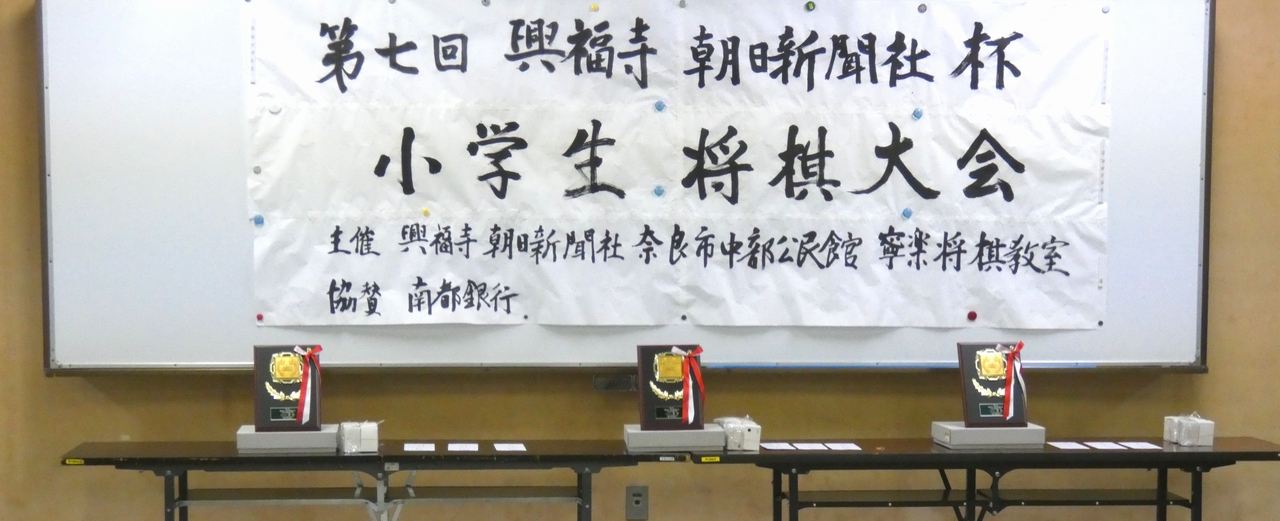 第七回 興福寺 朝日新聞社 杯
小学生 将棋大会
主催 興福寺 朝日新聞社 奈良市中部公民館 寧楽将棋教室
協賛 南都銀行